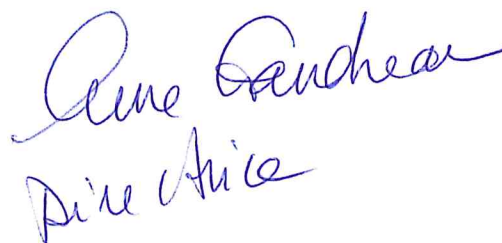 Anne Gaudreau
Directrice